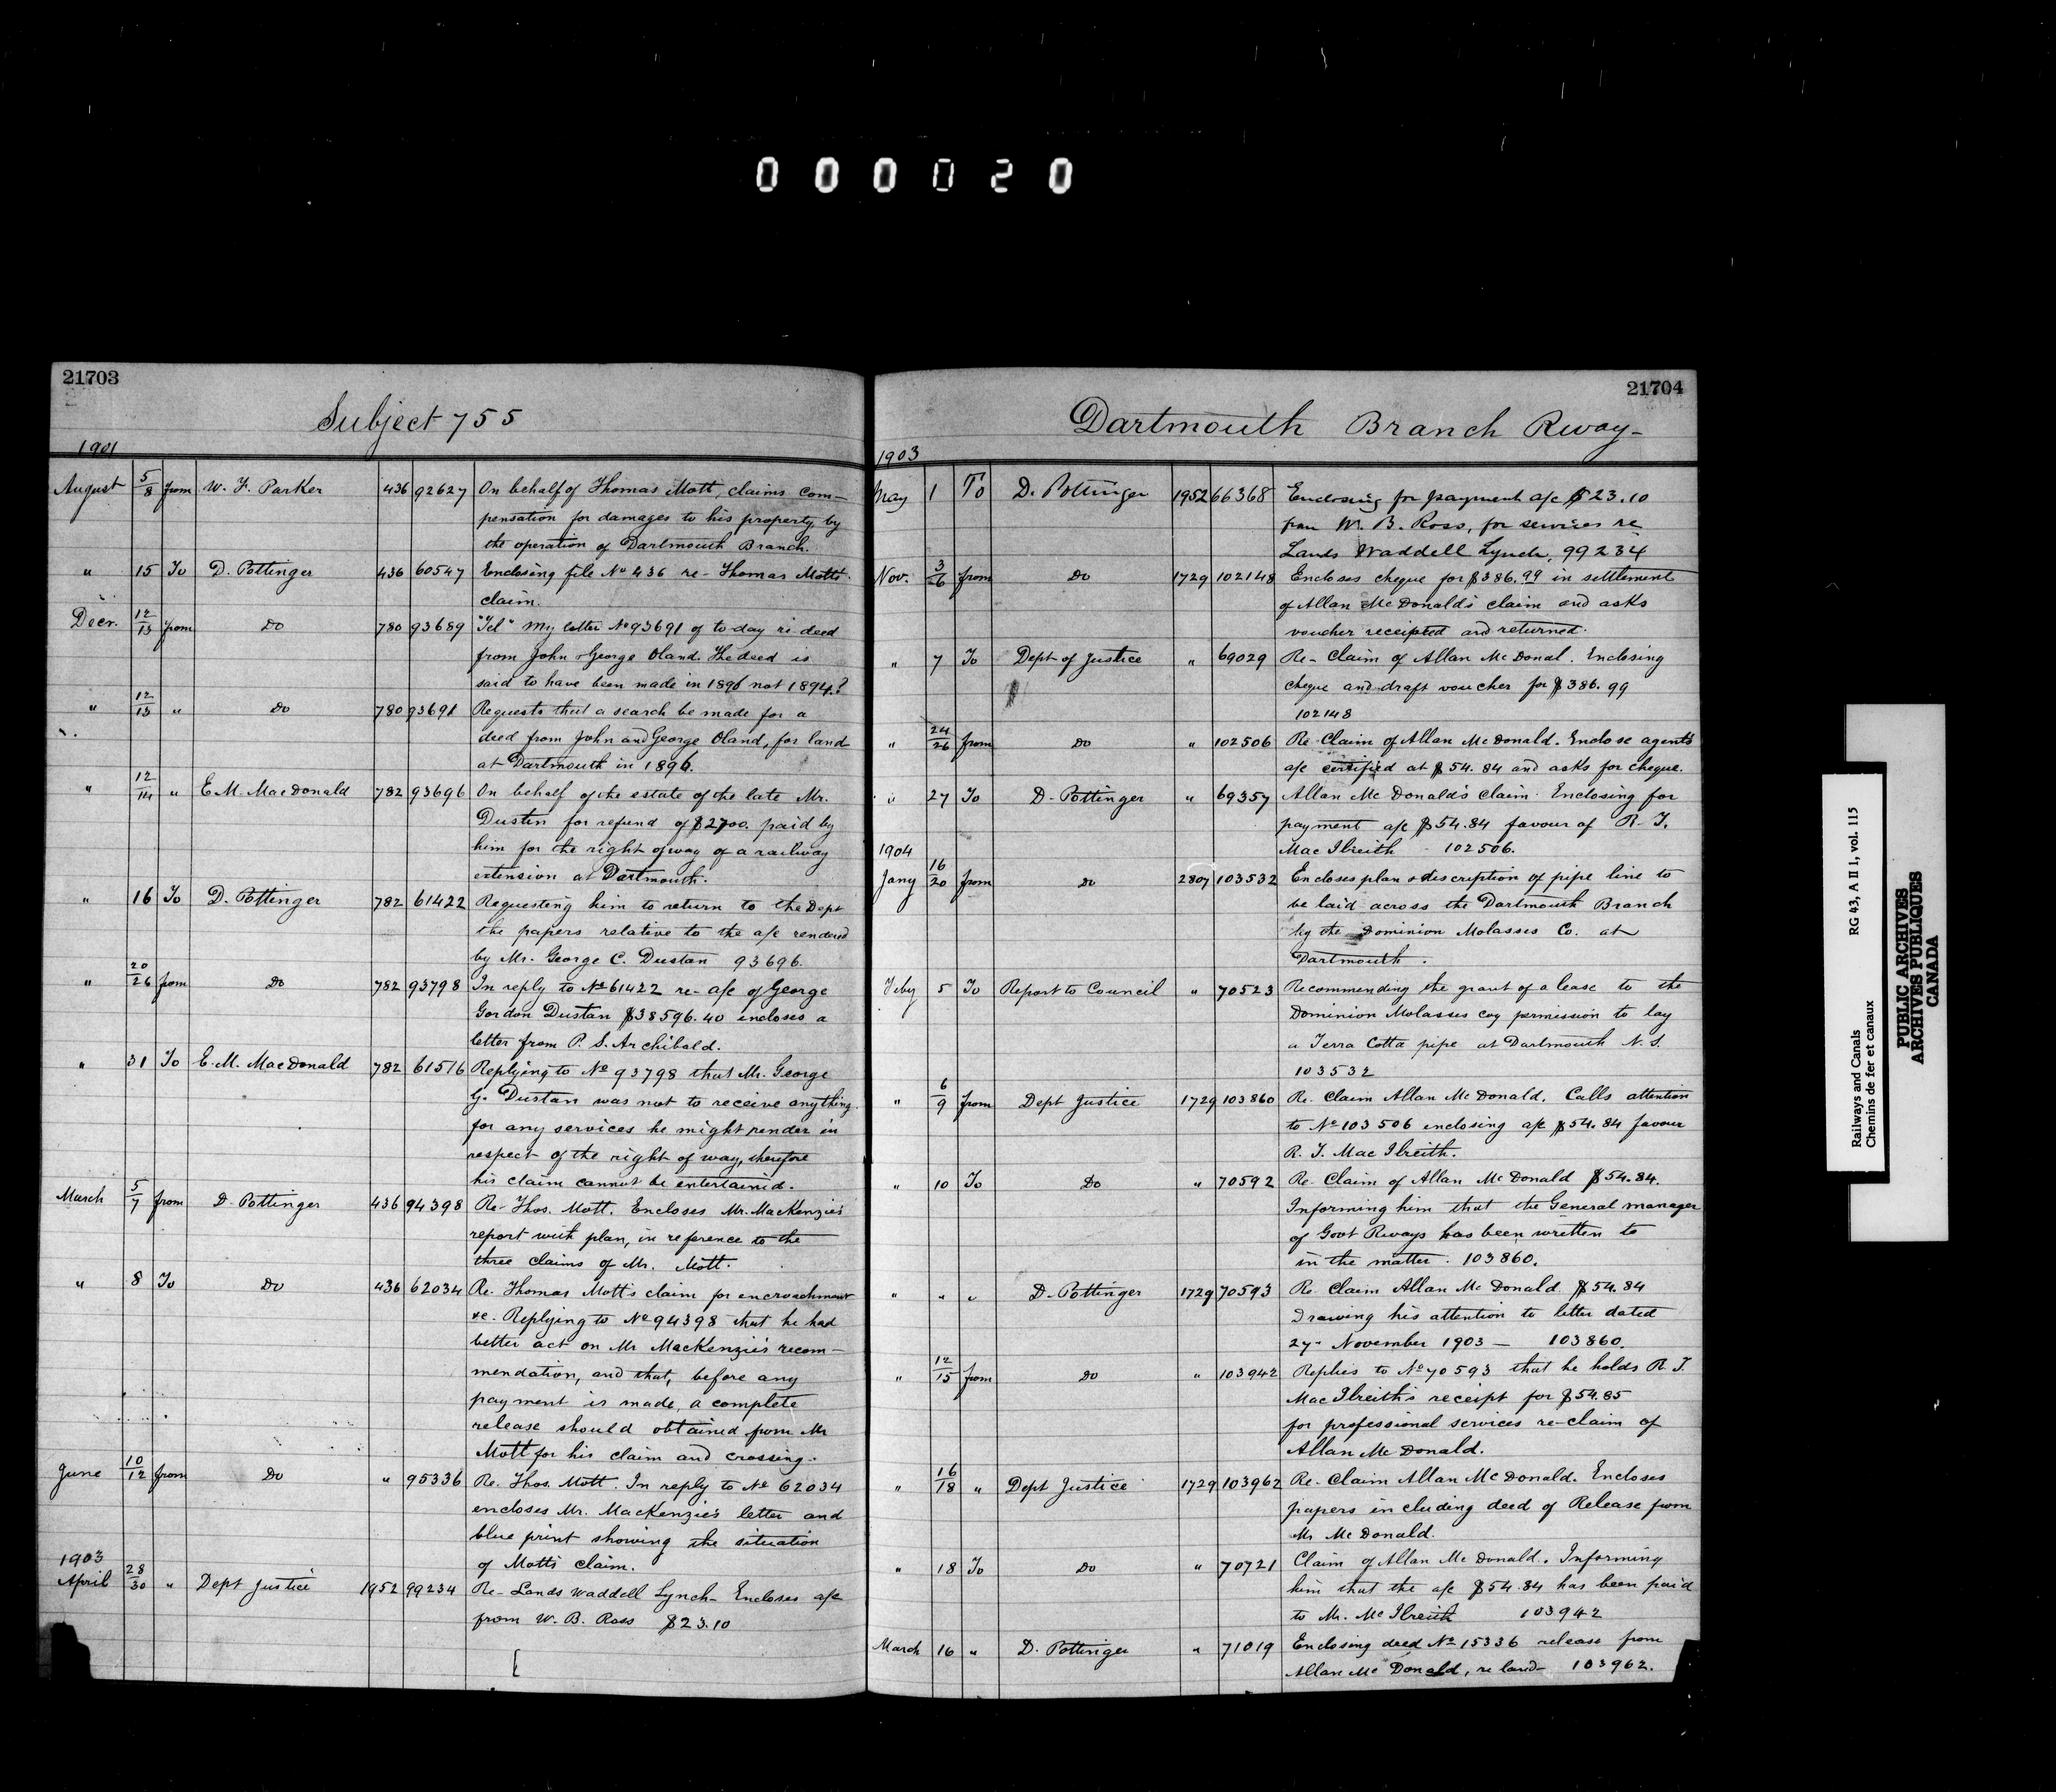 000020
21703
Subject 755
1901
August 5/8 from W. F. Parker 436 92627 On behalf of Thomas Mott, claims com-
pensation for damages to his property, by
the operation of Dartmouth Branch.
" 15 To D. Pottinger 436 60547 Enclosing file No 436 re- Thomas Motts
claim.
Decr. 12/13 from Do 780 93689 "Tel" My letter No 93691 of to-day re deed
from John & George Oland. The deed is
said to have been made in 1896 not 1894.?
" 12/13 " Do 780 93691 Requests that a search be made for a
deed from John and George Oland, for land
at Dartmouth in 1896.
" 12/14 " E. M. MacDonald 782 93696 On behalf of the estate of the late Mr.
Dustin for refund of $2700. paid by
him for the right of way of a railway
extension at Dartmouth.
" 16 To D. Pottinger 782 61422 Requesting him to return to the Dept
the papers relative to the a/c rendered
by Mr. George C. Dustan 93696.
" 20/26 from Do 782 93798 In reply to No 61422 re- a/c of George
Gordon Dustan $38596.40 encloses a
letter from P. S. Archibald.
" 31 To E. M. MacDonald 782 61516 Replying to No 93798 that Mr. George
G. Dustan was not to receive anything
for any services he might render in
respect of the right of way, therefore
his claim cannot be entertained.
March 5/7 from D. Pottinger 436 94398 Re- Thos. Mott. Encloses Mr. MacKenzie's
report with plan, in reference to the
three claims of Mr. Mott.
" 8 To Do 436 62034 Re. Thomas Mott's claim for encroachment
&c. Replying to No 94398 that he had
better act on Mr MacKenzie's recom-
mendation, and that, before any
payment is made, a complete
release should obtained from Mr
Mott for his claim and crossing.
June 10/12 from Do " 95336 Re. Thos. Mott. In reply to No 62034
encloses Mr. MacKenzie's letter and
blue print showing the situation
of Motts claim.
1903
April 28/30 " Dept Justice 1952 99234 Re- Lands Waddell Lynch- Encloses a/c
from W. B. Ross $23.10
21704
Dartmouth Branch Rway-
1903
May 1 To D. Pottinger 1952 66368 Enclosing for payment a/c $23.10
from W. B. Ross, for services re
Lands Waddell Lynch. 99234
Nov. 3/6 from Do 1729 102148 Encloses cheque for $386.99 in settlement
of Allan McDonald's claim and asks
voucher receipted and returned.
" 7 To Dept of Justice " 69029 Re- Claim of Allan McDonal. Enclosing
cheque and draft voucher for $386.99
102148
" 24/26 from Do " 102506 Re Claim of Allan McDonald. Enclose agents
a/c certified at $54.84 and asks for cheque.
" 27 To D. Pottinger " 69357 Allan McDonald's claim. Enclosing for
payment a/c $54.84 favour of R. T.
MacIlreith 102506.
1904
Jany 16/20 from Do 2807 103532 Encloses plan & discription of pipe line to
be laid across the Dartmouth Branch
by the Dominion Molasses Co. at
Dartmouth.
Feby 5 To Report to Council " 70523 Recommending the grant of a lease to the
Dominion Molasses coy permission to lay
a Terra Cotta pipe at Dartmouth N.S.
103532
" 6/9 from Dept Justice 1729 103860 Re. Claim Allan McDonald. Calls attention
to No 103506 enclosing a/c $54.84 favour
R. T. MacIlreith.
" 10 To Do " 70592 Re. Claim of Allan McDonald $54.84.
Informing him that the General manager
of Govt Rways has been written to
in the matter. 103860.
" " " D. Pottinger 1729 70593 Re. Claim Allan McDonald $54.84
Drawing his attention to letter dated
27- November 1903 - 103860.
" 12/15 from Do " 103942 Replies to No 70593 that he holds R. T.
MacIlreith's receipt for $54.85
for professional services re-claim of
Allan McDonald.
" 16/18 " Dept Justice 1729 103962 Re- Claim Allan McDonald. Encloses
papers including deed of Release from
Mr McDonald.
" 18 To Do " 70721 Claim of Allan McDonald. Informing
him that the a/c $54.84 has been paid
to Mr. McIlreith 103942
March 16 " D. Pottinger " 71019 Enclosing deed No 15336 release from
Allan McDonald, re land- 103962.
Railways and Canals RG 43, A II 1, vol. 115
Chemins de fer et canaux
PUBLIC ARCHIVES
ARCHIVES PUBLIQUES
CANADA